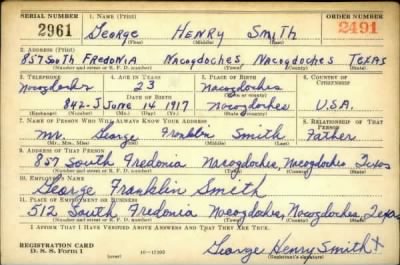 SERIAL NUMBER 1. NAME (Print) ORDER NUMBER
2961 George HENRY Smith 2491
(First) (Middle) (Last)
2. ADDRESS (Print)
857 South FREDONIA Nacogdoches Nacogdoches TEXAS
(Number and street or R. F. D. number) (Town) (County) (State)
3. TELEPHONE 4. AGE IN YEARS 5. PLACE OF BIRTH 6. COUNTRY OF CITIZENSHIP
Nacogdoches 23 Nacogdoches
DATE OF BIRTH (Town or county)
842-J June 14 1917 Nacogdoches U.S.A.
(Exchange) (Number) (Mo.) (Day) (Yr.) (State or country)
7. NAME OF PERSON WHO WILL ALWAYS KNOW YOUR ADDRESS 8. RELATIONSHIP OF THAT PERSON
Mr. George Franklin Smith Father
(Mr., Mrs., Miss) (First) (Middle) (Last)
9. ADDRESS OF THAT PERSON
857 South Fredonia Nacogdoches, Nacogdoches, Texas
(Number and street or R. F. D. number) (Town) (County) (State)
10. EMPLOYER'S NAME
George Franklin Smith
11. PLACE OF EMPLOYMENT OR BUSINESS
512 South Fredonia Nacogdoches, Nacogdoches, Texas
(Number and street or R. F. D. number) (Town) (County) (State)
I AFFIRM THAT I HAVE VERIFIED ABOVE ANSWERS AND THAT THEY ARE TRUE.
REGISTRATION CARD
D. S. S. Form 1 (over) George Henry Smith
(Registrant's signature)